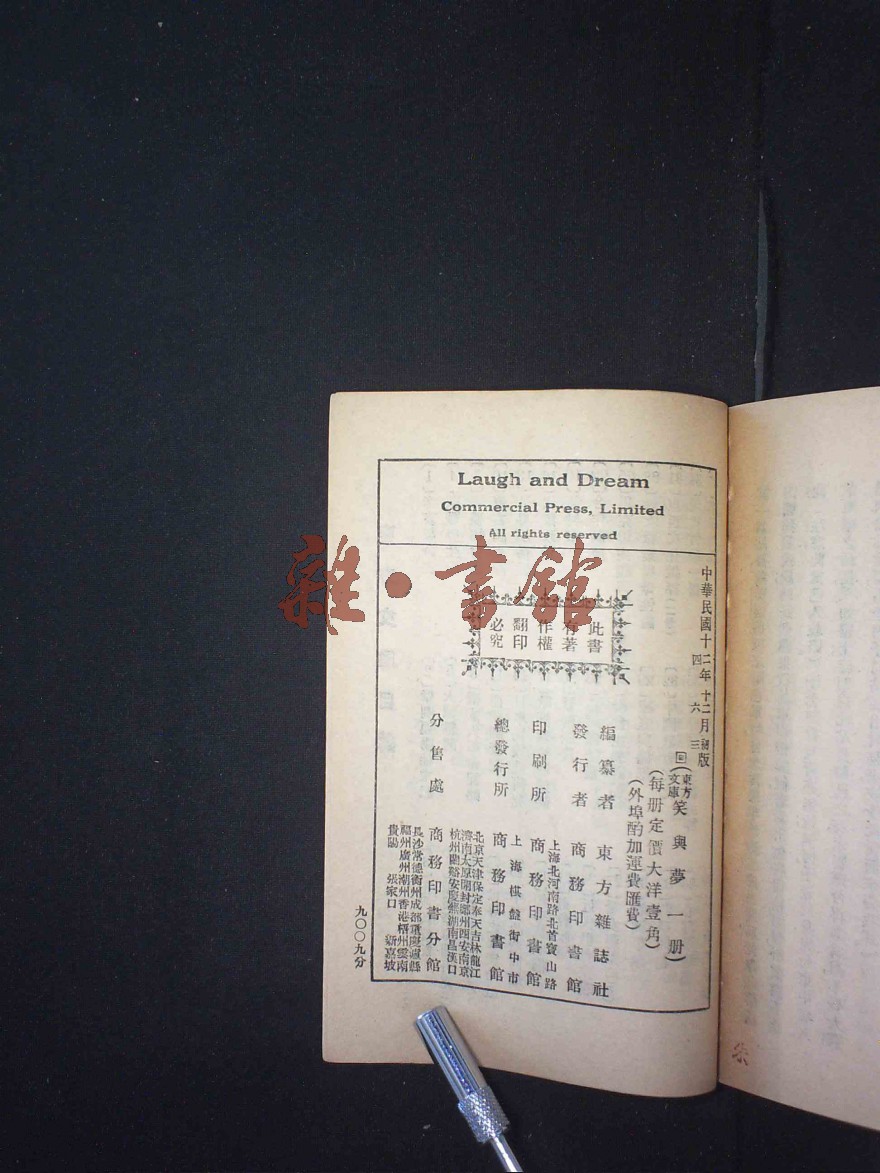 Laugh and Dream
Commercial Press, Limited
All rights reserved
中華民國十二年十二月初版
四 六 三
(東方文庫)笑與夢一册)
(每册定價大洋壹角)
(外埠酌加運費匯費)
此書
有著
作權
翻印
必究
編纂者 東方雜誌社
發行者 商務印書館
上海北河南路北首寶山路
印刷所 商務印書館
上海棋盤街中市
總發行所 商務印書館
北京天津保定奉天吉林龍江
濟南太原開封鄭州西安南京
杭州蘭谿安慶蕪湖南昌漢口
分售處 商務印書分館
長沙常德衡州成都重慶瀘縣
福州廣州潮州香港梧州雲南
貴陽 張家口 新嘉坡
九〇〇九分
雜·書館